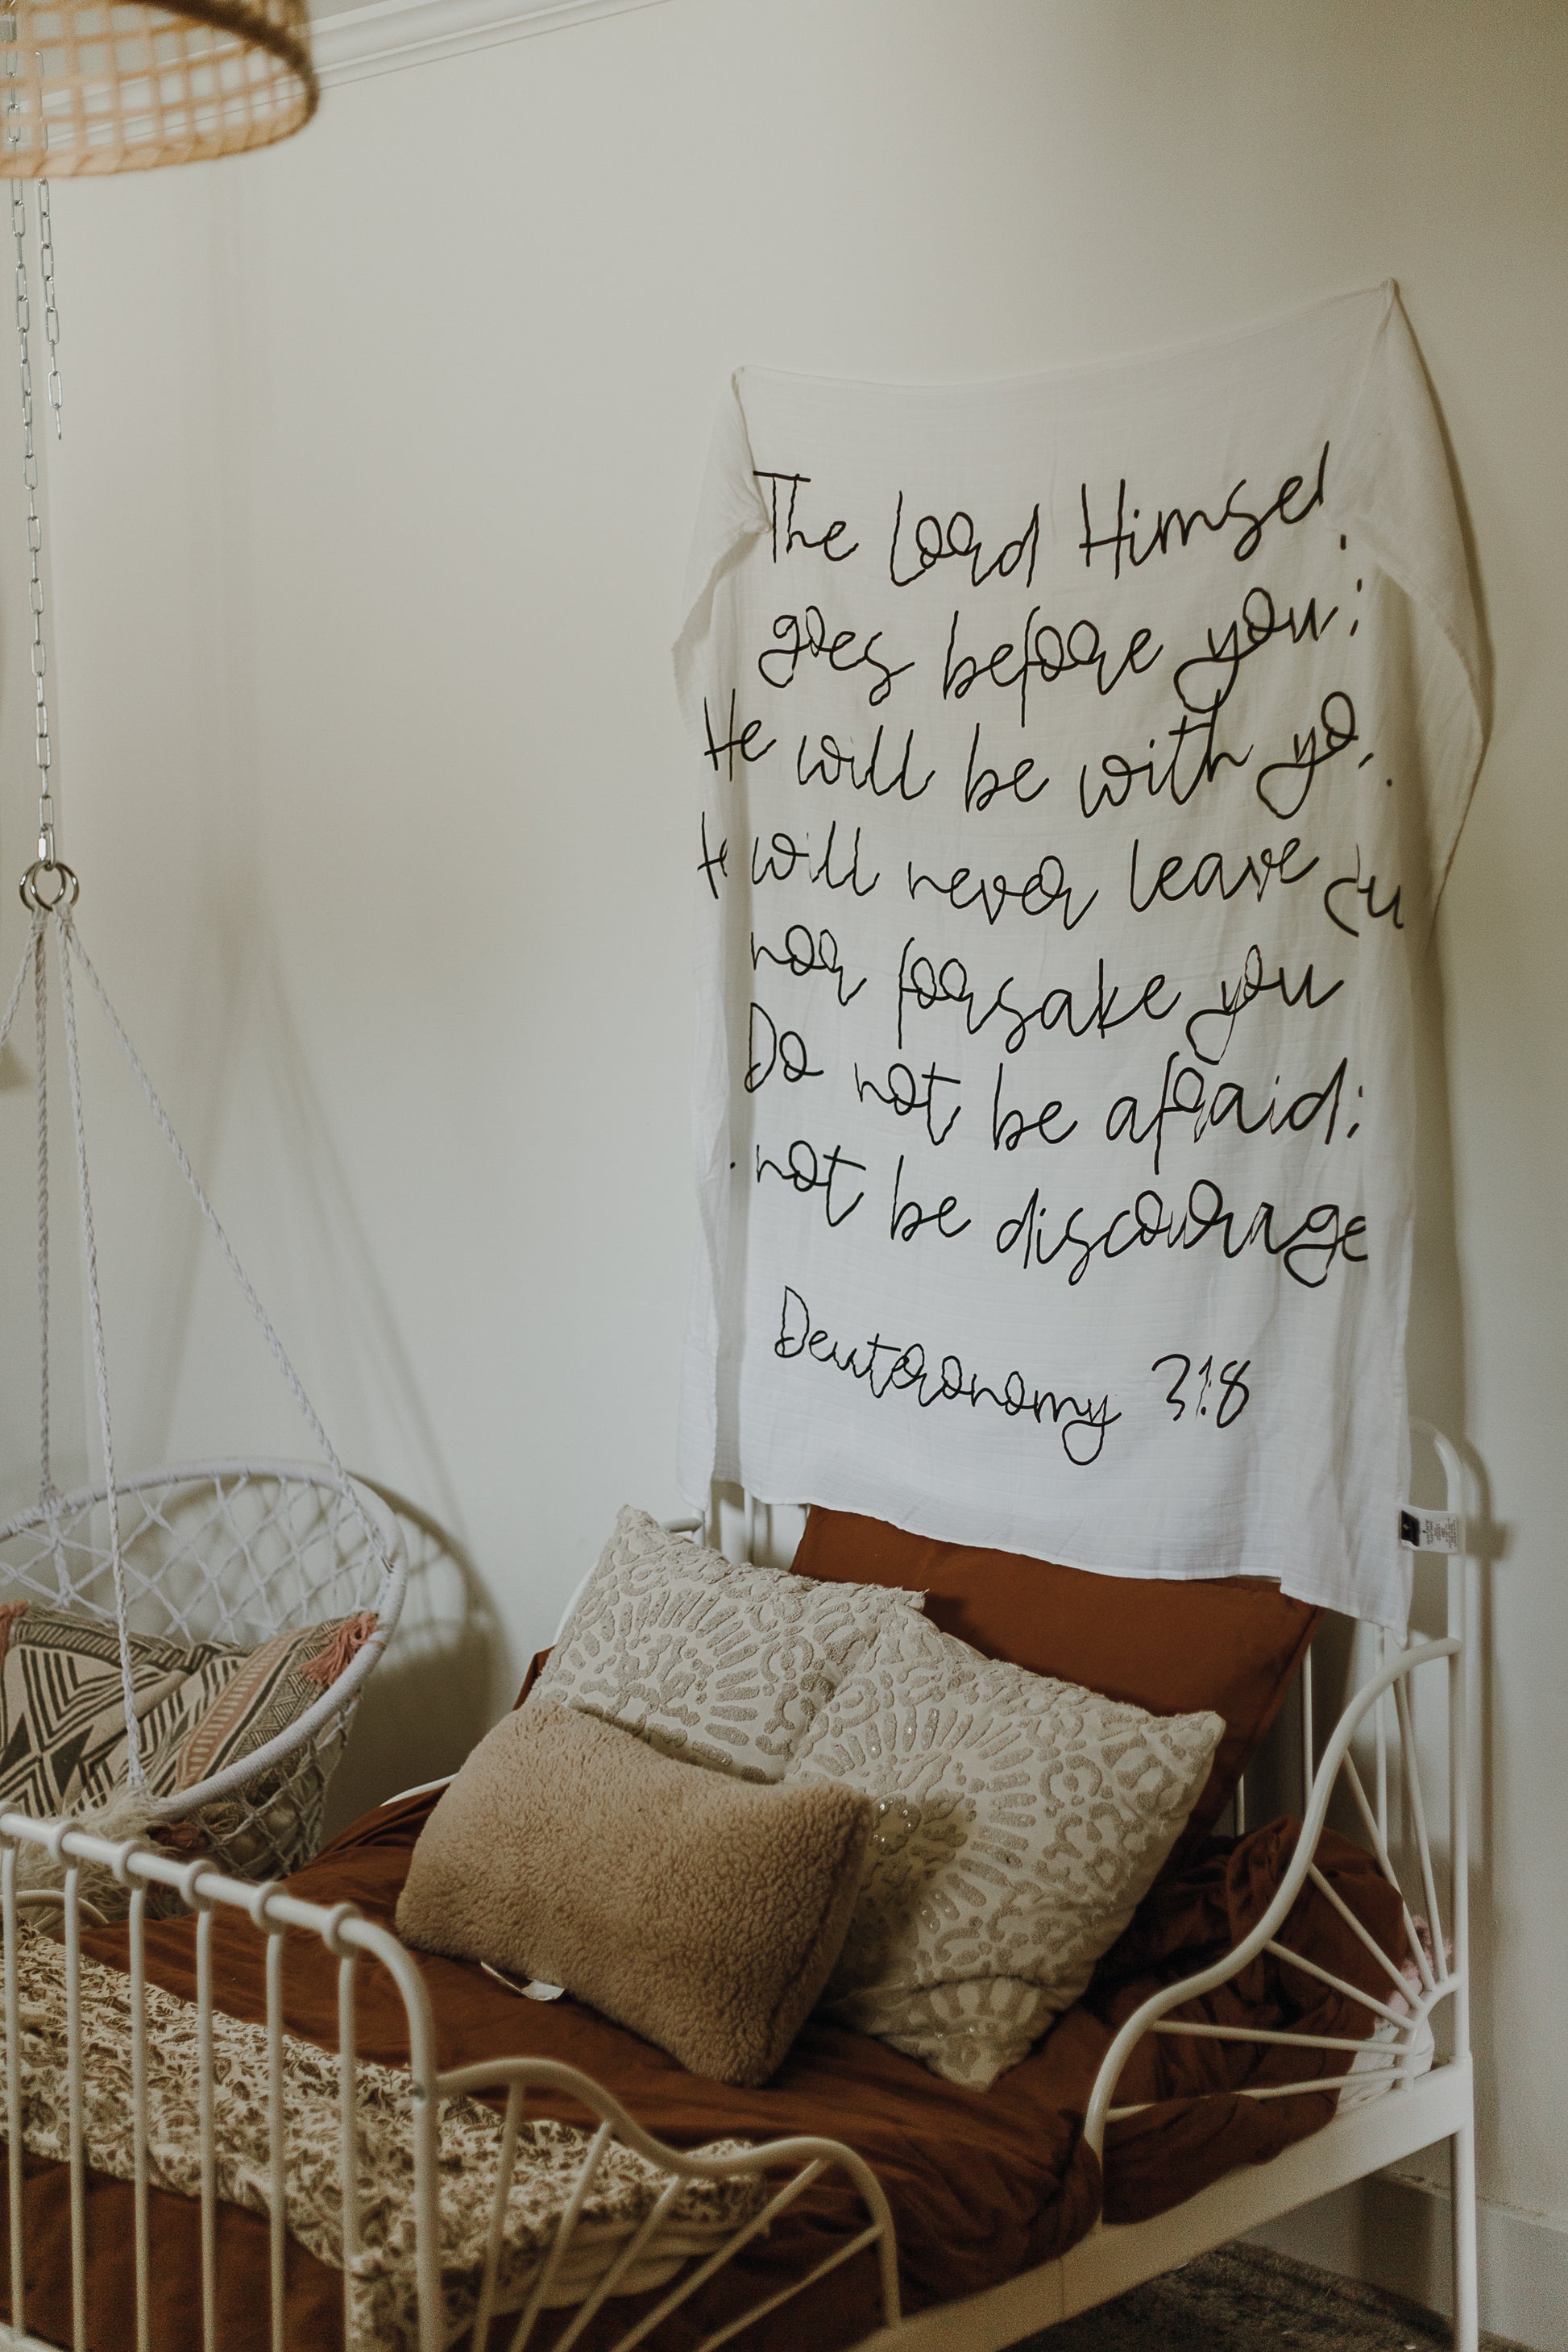 The Lord Himsel
goes before you;
He will be with yo
He will never leave you
nor forsake you
Do not be afraid;
not be discourage
Deuteronomy 31:8